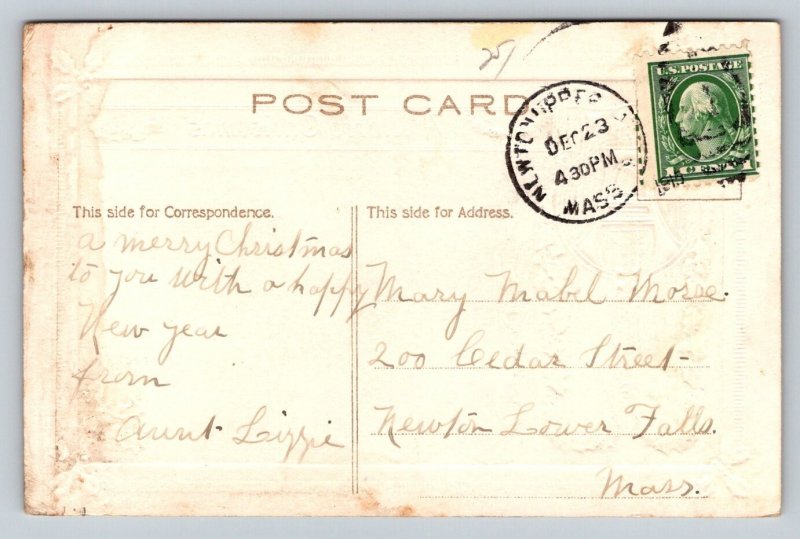 25/
POST CARD
NEWTON UPPER
DEC 23
4 30 PM
MASS
U.S. POSTAGE
1 CENT 1
This side for Correspondence.
This side for Address.
a merry Christmas
to you with a happy
New year
from
Aunt Lizzie
Mary Mabel
200 Cedar Street
Newton Lower Falls.
Mass.